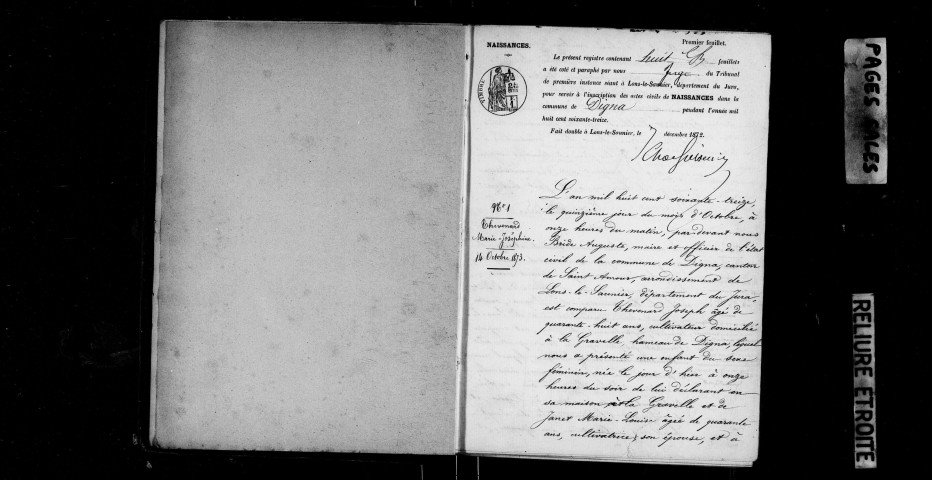 NAISSANCES.
Premier feuillet.
Le présent registre contenant huit feuillets
a été coté et paraphé par nous Juge du Tribunal
de première instance séant à Lons-le-Saunier, département du Jura,
pour servir à l'inscription des actes civils de NAISSANCES dans la
commune de Digna pendant l'année mil
huit cent soixante-treize.
Fait double à Lons-le-Saunier, le 7 décembre 1872.
N° 1
Thevenard
Marie-Joséphine.
14 Octobre 1873.
L'an mil huit cent soixante-treize,
le quinzième jour du mois d'Octobre, à
onze heures du matin, par-devant nous
Bride Auguste, maire et officier de l'état
civil de la commune de Digna, canton
de Saint Amour, arrondissement de
Lons-le-Saunier, département du Jura,
est comparu Thevenard Joseph âgé de
quarante-huit ans, cultivateur domicilié
à la Gravelle, hameau de Digna, lequel
nous a présenté une enfant du sexe
féminin, née le jour d'hier à onze
heures du soir de lui déclarant en
sa maison à la Gravelle et de
Janet Marie-Louise âgée de quarante
ans, cultivatrice, son épouse, et à
PAGES SALES
RELIURE ETROITE